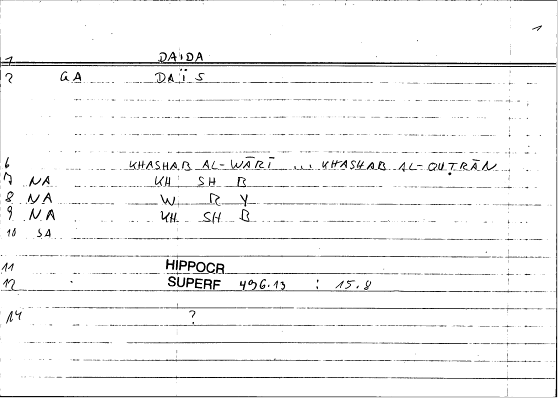 1
1 DAIDA
2 GA DAÏS
6 KHASHAB AL-WĀRĪ ... KHASHAB AL-QUṬRĀN
7 NA KH SH B
8 NA W R Y
9 NA KH SH B
10 SA
11 HIPPOCR
12 SUPERF 496.13 : 15.8
14 ?